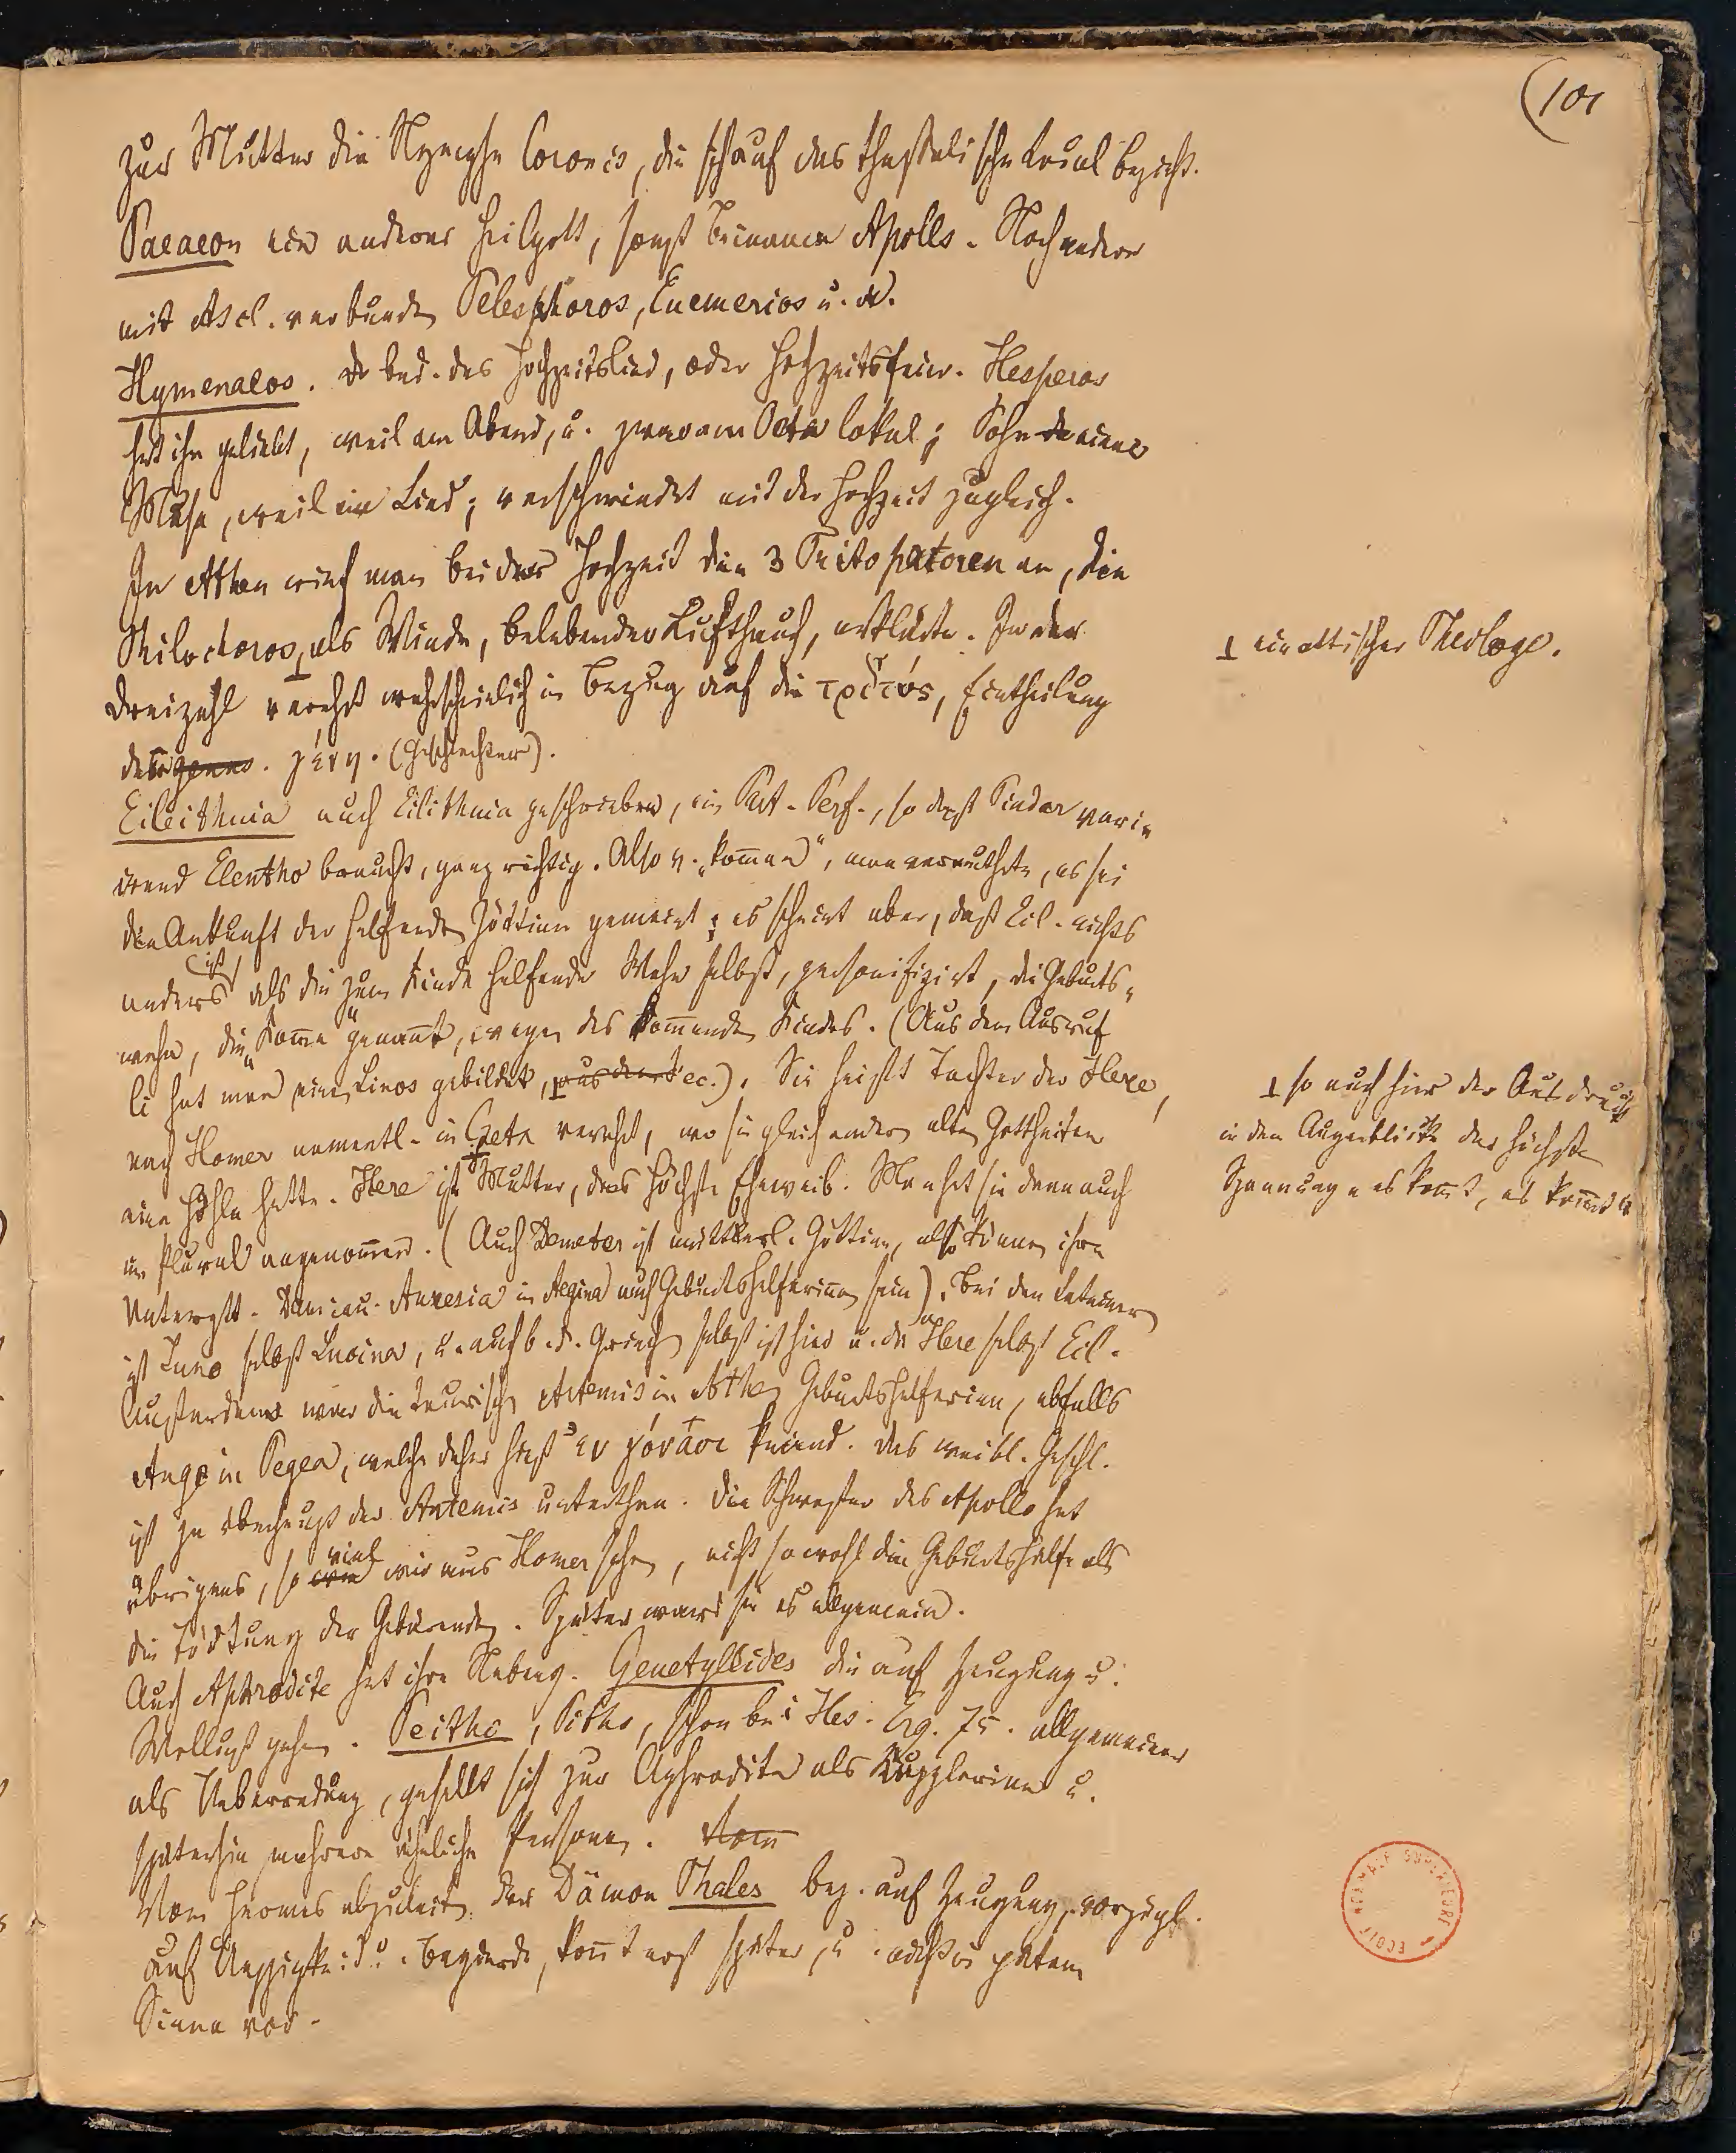 (101
zur Mutter die Nymphe Coronis, die sich auf das thessalische Local bezieht.
Paeaeon ein anderer Heilgott, sonst Beiname Apolls. Noch andere
mit Ascl. verbunden Telesphoros, Euemerios u. A.
Hymenaeos. bed. das Hochzeitslied, oder Hochzeitsfeier. Hesperos
hat ihn geliebt, weil am Abend, u. zwar am Oeta lokal; Sohn einer
Muse, weil ein Lied; verschwindet mit der Hochzeit zugleich.
In Athen rief man bei der Hochzeit die 3 Tritopatoren an, die
Philochoros als Winde, belebender Lufthauch, erklärte. In der
⊥ ein attischer Theologe.
Dreizahl verehrt wahrscheinlich in Bezug auf die τριττύς, Eintheilung
der genus. γένη. (Geschlechter).
Eileithuia auch Eilithuia geschrieben, ein Part. Perf., so dass Pindar vari-
irend Elentho braucht, ganz richtig. Also v. „kommen", man vermuthete, es sei
die Ankunft der helfenden Göttinn gemeint; es scheint aber, dass Eil. nichts
anders ist als die zum Kinde helfende Wehe selbst, personifizirt, die Geburts-
wehe, die „Komme" genannt, wegen des kommenden Kindes. (Aus dem Ausruf
li hat man einen Linos gebildet, aus dem ec.). Sie heisst Tochter der Here,
⊥ so auch hier der Ausdruck
in dem Augenblicke der höchsten
Spannung „es kommt, es kommt"
nach Homer namentl. in Creta verehrt, wo sie gleich andern alten Gottheiten
eine Höhle hatte. Here ist Mutter, das höchste Eheweib. Man hat sie dann auch
im Plural angenommen. (Auch Demeter ist mütterl. Göttinn, also können ihre
Untergött. Damia u. Auxesia in Aegina auch Geburtshelferinnen sein). Bei den Lateinern
ist Juno selbst Lucina, u. auch b. d. Griechen selbst ist hier u. da Here selbst Eil.
Ausserdem war die taurische Artemis in Athen Geburtshelferinn, ebfalls
Auge in Tegea, welche daher hiess ἐν γόνασι knieend. Das weibl. Geschl.
ist ja überhaupt der Artemis unterthan. Die Schwester des Apollo hat
übrigens, so viel wir aus Homer sehen, nicht sowohl die Geburtshülfe als
die Tödtung der Gebärenden. Später ward sie es allgemein.
Auch Aphrodite hat ihre Nebeng. Genetyllides die auf Zeugung u.
Wollust gehen. Peitho, Pitho, schon bei Hes. Erg. 75. allgemeiner
als Ueberredung, gesellt sich zur Aphrodite als Kupplerinn u.
späterhin mehrere ähnliche Personen. Vom
Vom Hermes abzuleiten der Dämon Phales bez. auf Zeugung, vorzügl.
auf Ueppigkeit u. Begierde, kommt erst später, u.
Sinne vor.
ECOLE NORMALE SUPERIEURE